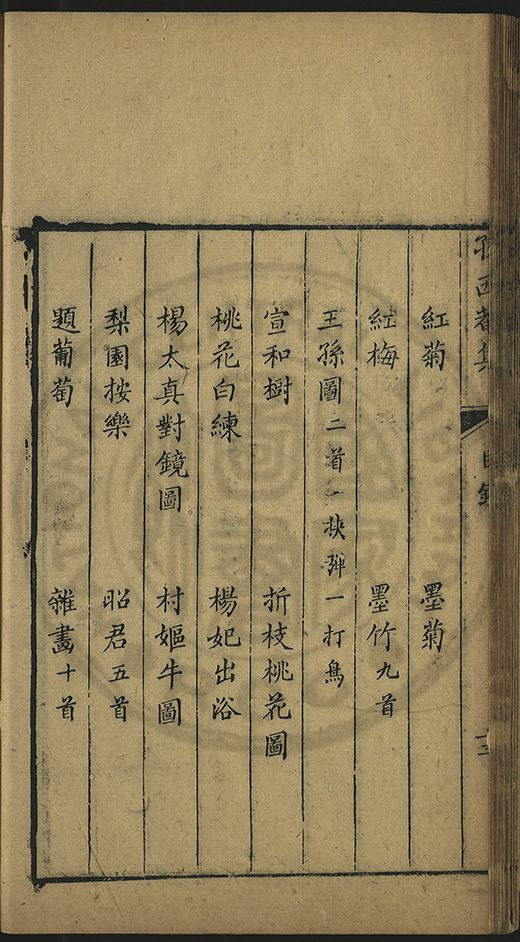 孫西菴集
目錄
紅菊 墨菊
紅梅 墨竹九首
王孫圖二首一挾彈一打鳥
宣和樹 折枝桃花圖
桃花白練 楊妃出浴
楊太真對鏡圖 村嫗牛圖
梨園按樂 昭君五首
題葡萄 雜畫十首